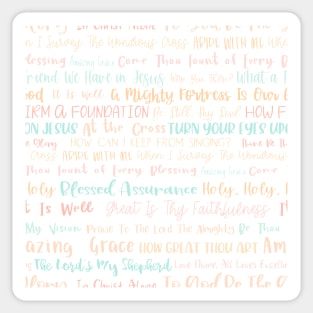 Glory In Christ Alone To God Be The G
When I Survey The Wondrous Cross ABIDE WITH ME When
Blessing Amazing Grace Come Thou Fount of Every B
Friend We Have in Jesus How You Know? What a F
God It is Well A Mighty Fortress Is Our G
FIRM A FOUNDATION Be Still My Soul HOW F
ON JESUS At the Cross TURN YOUR EYES UPO
HOW CAN I KEEP FROM SINGING?
Cross ABIDE WITH ME When I Survey The Wondrous
Come Thou Fount of Every Blessing Come
Holy Blessed Assurance Holy, Holy, H
It Is Well Great Is Thy Faithfulness It
My Vision Praise To The Lord The Almighty Be Thou
azing Grace HOW GREAT THOU ART Am
The Lord's My Shepherd Love Divine, All Loves Excellin
Glory In Christ Alone To God Be The